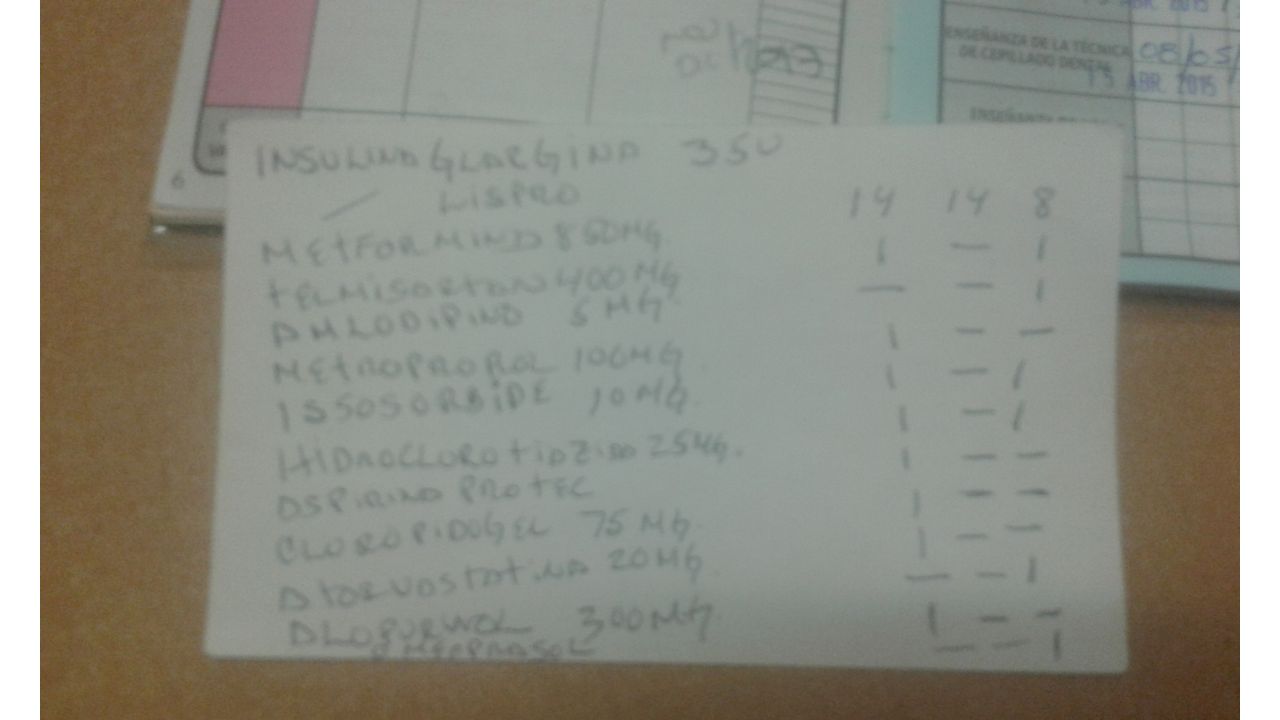 ABR. 2015
ENSEÑANZA DE LA TÉCNICA
DE CEPILLADO DENTAL
08/05/
13 ABR. 2015
6
INSULINA GLARGINA 35U
— LISPRO 14 14 8
METFORMINA 850MG 1 — 1
TELMISARTAN 400MG — — 1
AMLODIPINO 5MG 1 — —
METROPROROL 100MG 1 — 1
ISSOSORBIDE 10MG. 1 — 1
HIDROCLOROTIAZIDA 25MG. 1 — —
ASPIRINA PROTEC 1 — —
CLOROPIDOGEL 75MG. 1 — —
ATORVASTATINA 20MG — — 1
ALOPURINOL 300MG. 1 — —
OMEOPRASOL — — 1